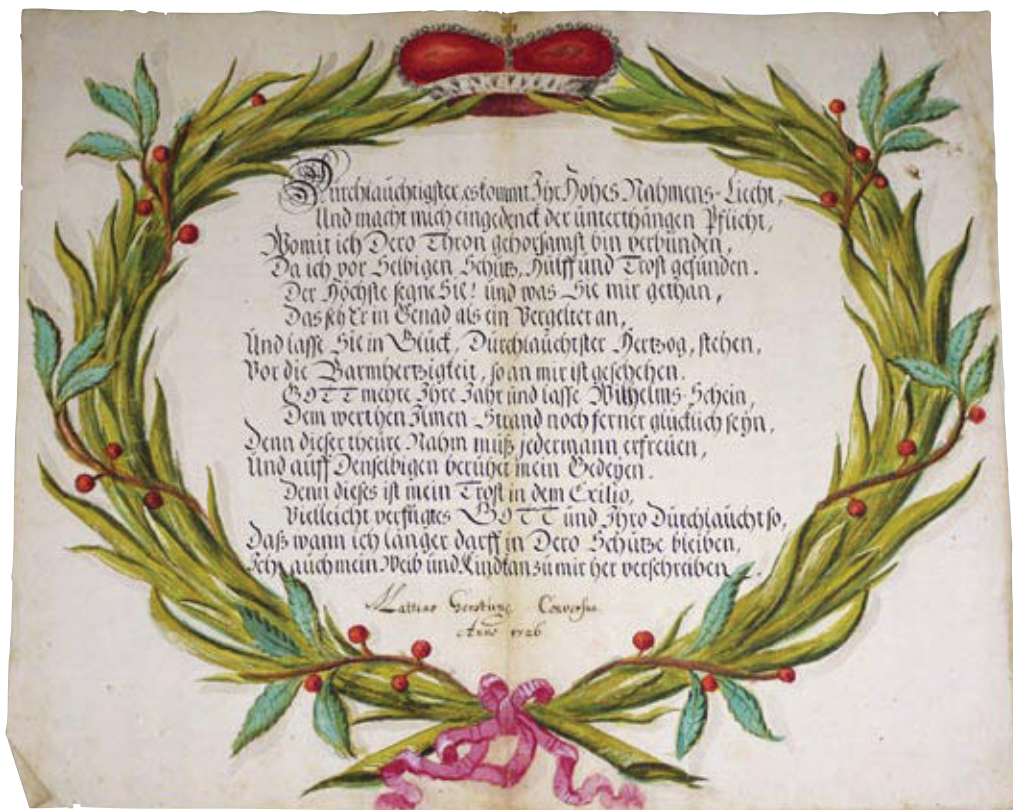 Durchlauchtigster, es kommt Ihr Hohes Nahmens-Liecht,
Und macht mich eingedenck der unterthängen Pflicht,
Womit ich Dero Thron gehorsamst bin verbunden,
Da ich vor Selbigen Schutz, Hülff und Trost gefunden.
Der Höchste segne Sie! und was Sie mir gethan,
Das seh Er in Genad als ein Vergelter an,
Und lasse Sie in Glück, Durchlauchtster Hertzog, stehen,
Vor die Barmhertzigkeit, so an mir ist geschehen.
GOTT mehre Ihre Jahr und lasse Wilhelms-Schein,
Dem werthen Ilmen-Strand noch ferner glücklich seyn,
Denn dieser theure Nahm muß jedermann erfreuen,
Und auff Denselbigen beruhet mein Gedeyen.
Denn dieses ist mein Trost in dem Exilio,
Vielleicht verfügtes GOTT und Ihro Durchlaucht so,
Daß wann ich länger darff in Dero Schutze bleiben,
Ich auch mein Weib und Kind kan zu mir her verschreiben.
Conversus
Anno 1726